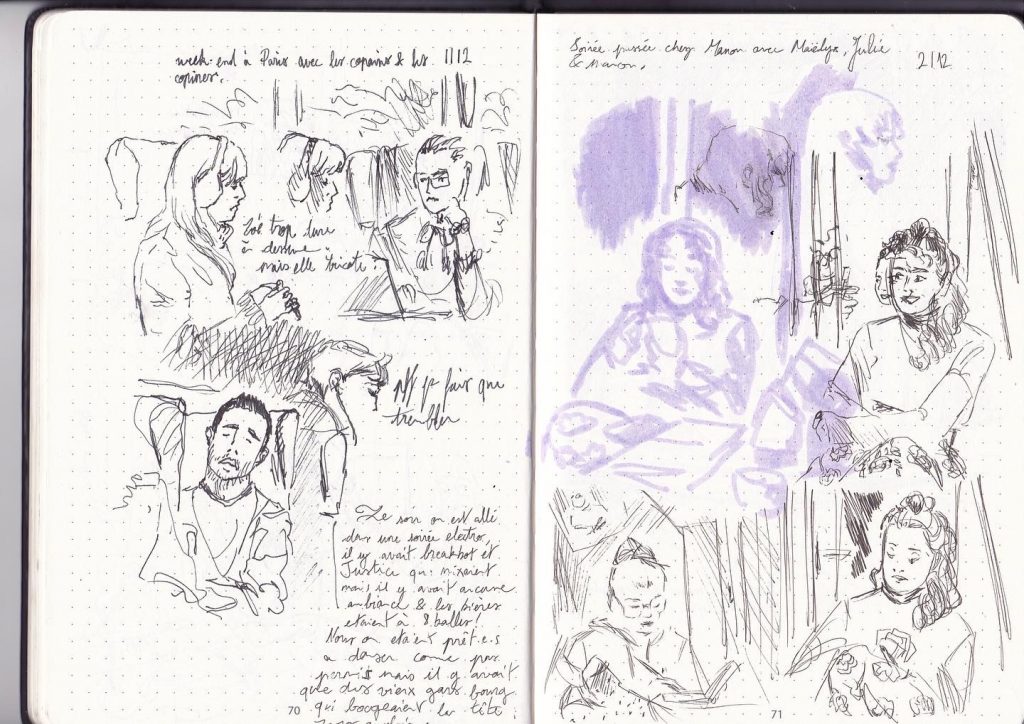 week-end à Paris avec les copains & les 1/12
copines.
trop dure
à dessiner
mais elle tricote.
pff je fais que
trembler
Le soir on est allé
dans une soirée electro,
il y avait breakbot et
Justice qui mixaient
mais il y avait aucune
ambiance & les bières
etaient à 8 balles!
Nous on etaient prêt.e.s
a danser comme pas
permis mais il y avait
que des vieux gars bourg
qui bougeaient la tête
70
Soirée passée chez Manon avec Maëlys, Julie 2/12
& Manon.
71